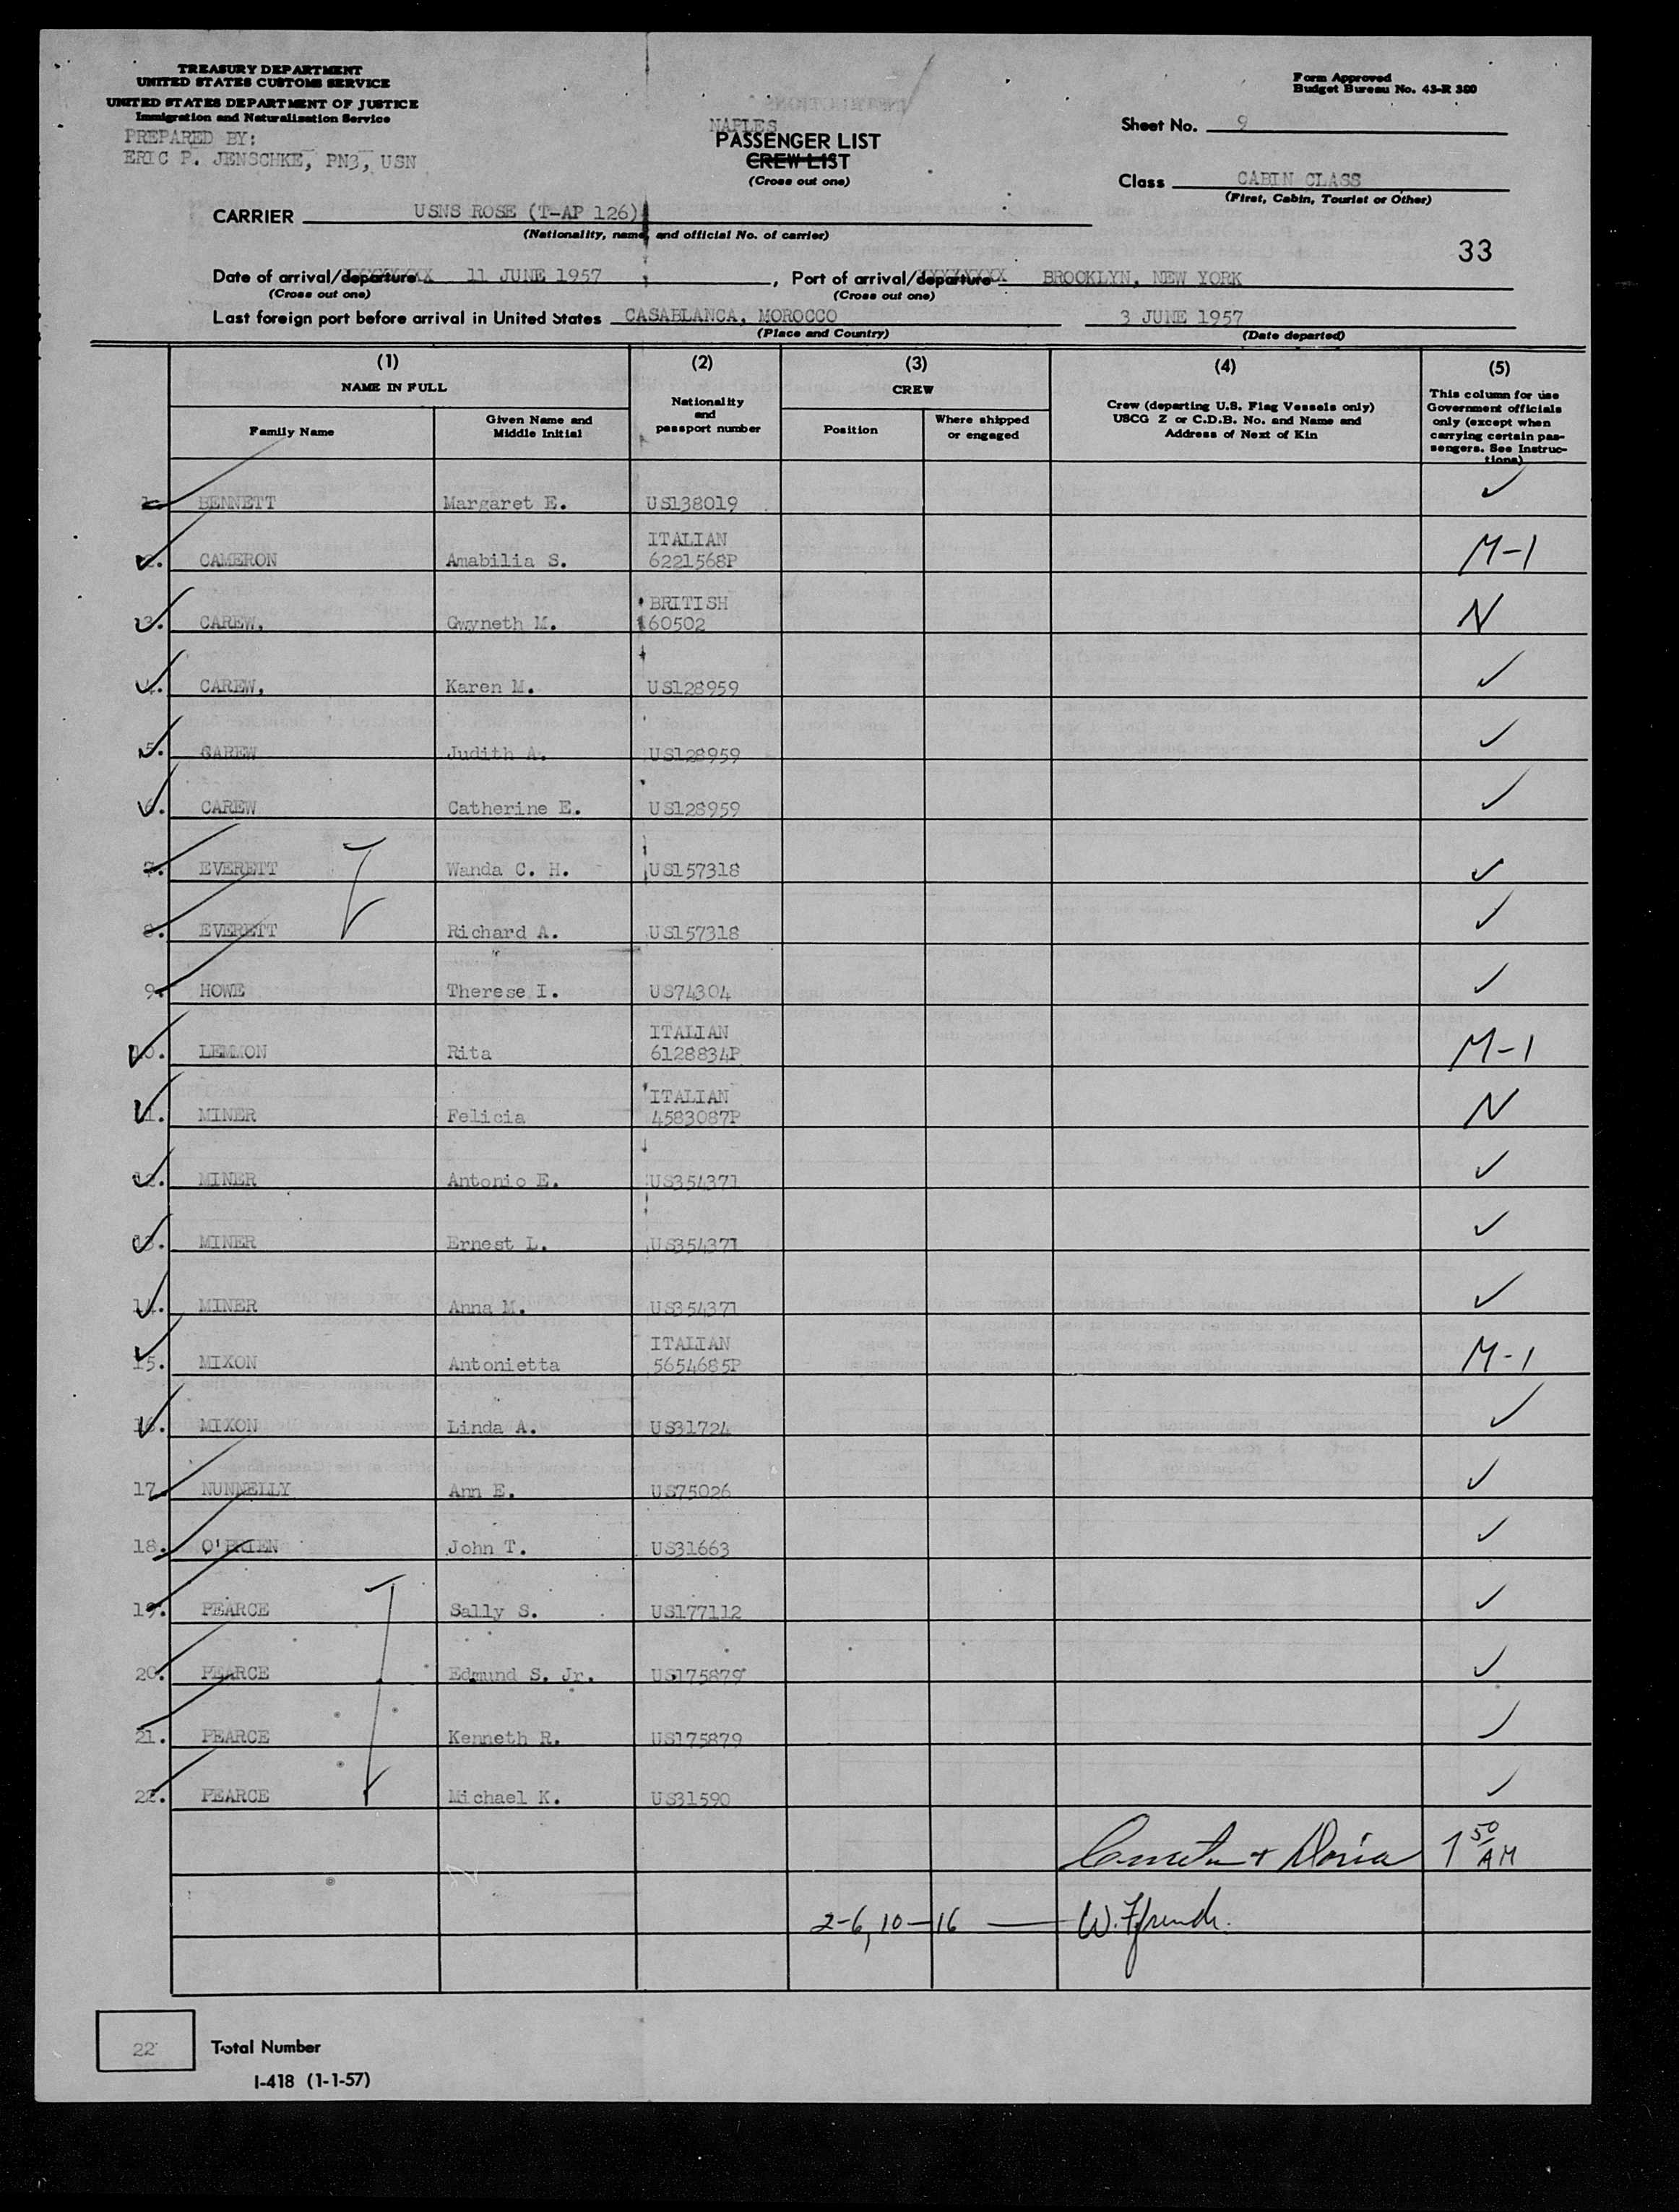 TREASURY DEPARTMENT
UNITED STATES CUSTOMS SERVICE
UNITED STATES DEPARTMENT OF JUSTICE
Immigration and Naturalization Service
PREPARED BY:
ERIC P. JENSCHKE, PN3, USN
NAPLES
PASSENGER LIST
CREW LIST
(Cross out one)
Form Approved
Budget Bureau No. 43-R 380
Sheet No. 9
Class CABIN CLASS
(First, Cabin, Tourist or Other)
CARRIER USNS ROSE (T-AP 126)
(Nationality, name, and official No. of carrier)
33
Date of arrival/departure 11 JUNE 1957, Port of arrival/departure BROOKLYN, NEW YORK
(Cross out one) (Cross out one)
Last foreign port before arrival in United States CASABLANCA, MOROCCO 3 JUNE 1957
(Place and Country) (Date departed)
(1) (2) (3) (4) (5)
NAME IN FULL
Family Name
Given Name and
Middle Initial
Nationality
and
passport number
CREW
Position
Where shipped
or engaged
Crew (departing U.S. Flag Vessels only)
USCG Z or C.D.B. No. and Name and
Address of Next of Kin
This column for use
Government officials
only (except when
carrying certain pas-
sengers. See Instruc-
tions)
1. BENNETT Margaret E. US138019 ✓
ITALIAN
2. CAMERON Amabilia S. 6221568P M-1
BRITISH
3. CAREW, Gwyneth M. 160502 N
4. CAREW, Karen M. US128959 ✓
5. CAREW Judith A. US128959 ✓
6. CAREW Catherine E. US128959 ✓
7. EVERETT Wanda C. H. US157318 ✓
8. EVERETT Richard A. US157318 ✓
9. HOWE Therese I. US74304 ✓
ITALIAN
10. LEMMON Rita 6128834P M-1
ITALIAN
11. MINER Felicia 4583087P N
12. MINER Antonio E. US354371 ✓
13. MINER Ernest L. US354371 ✓
14. MINER Anna M. US354371 ✓
ITALIAN
15. MIXON Antonietta 5654685P M-1
16. MIXON Linda A. US31724 ✓
17. NUNNELLY Ann E. US75026 ✓
18. O'BRIEN John T. US31663 ✓
19. PEARCE Sally S. US177112 ✓
20. PEARCE Edmund S. Jr. US175879 ✓
21. PEARCE Kenneth R. US175879 ✓
22. PEARCE Michael K. US31590 ✓
+ Doria 1 50 AM
2-6, 10-16 — W.
22 Total Number
I-418 (1-1-57)